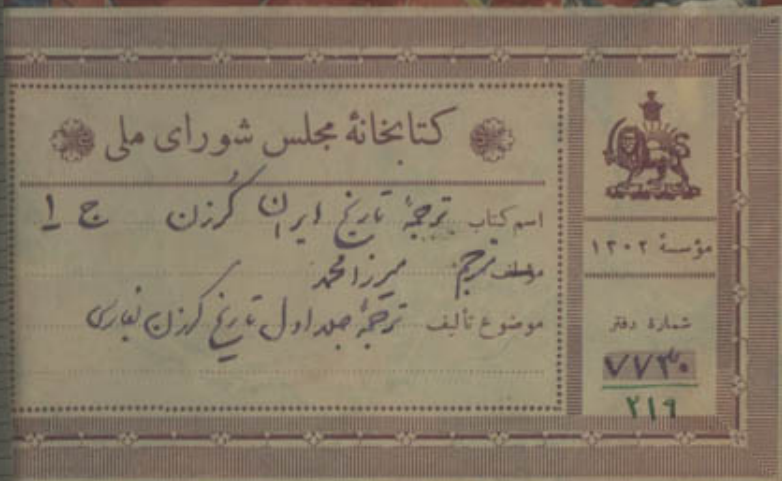 کتابخانهٔ مجلس شورای ملی
اسم کتاب ترجمهٔ تاریخ ایران کُرزن ج ۱
مؤلف مترجم میرزا محمد
موضوع تألیف ترجمهٔ جلد اول تاریخ کرزن بفارسی
مؤسسهٔ ۱۳۰۲
شمارهٔ دفتر
۷۷۳۰
۲۱۹